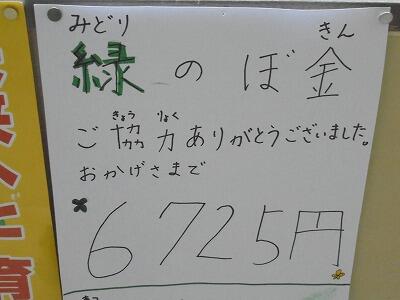 みどり きん
緑のぼ金
きょう りょく
ご協力ありがとうございました。
おかげさまで
6725円